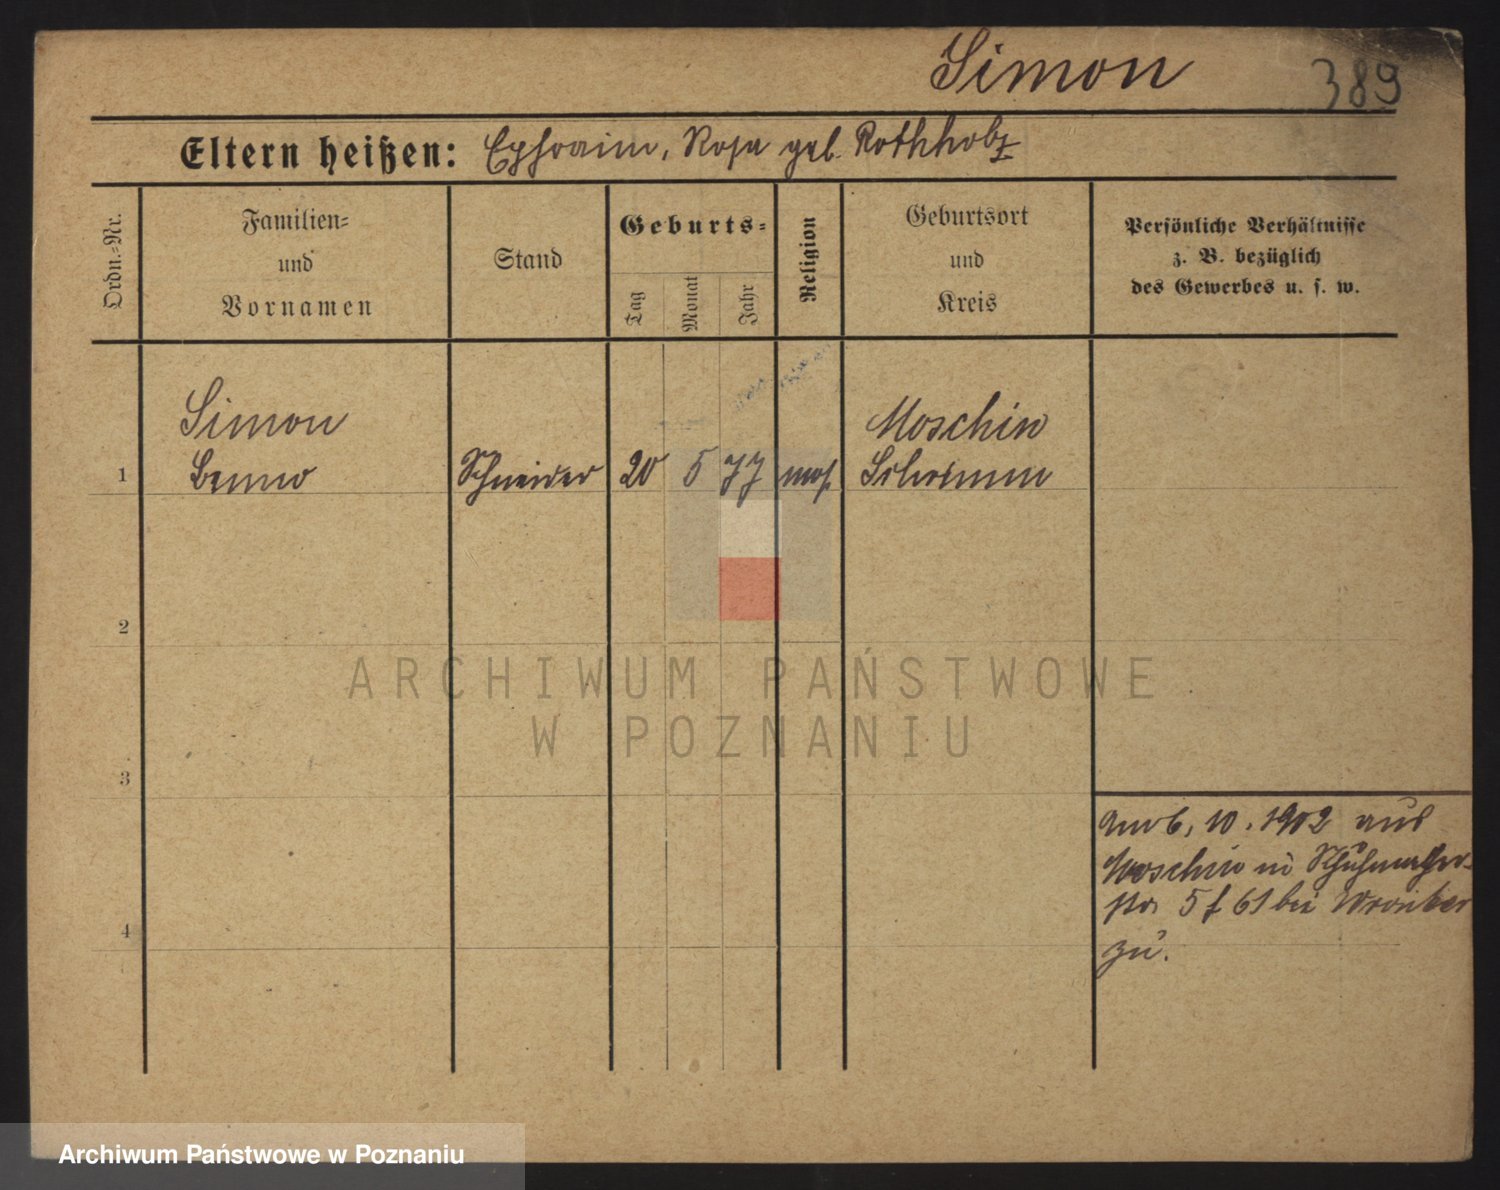 Simon
389
Eltern heißen: Ephraim, Rosa geb. Rothholz
Ordn.-Nr.
Familien-
und
Vornamen
Stand
Geburts-
Tag
Monat
Jahr
Religion
Geburtsort
und
Kreis
Persönliche Verhältnisse
z. B. bezüglich
des Gewerbes u. s. w.
Simon
Moschin
1 Benno Schneider 20 5 77 mos. Schrimm
2
ARCHIWUM PAŃSTWOWE
W POZNANIU
3
6. 10. 1902 aus
Moschin in Schuhmacher-
str. 5 f 61 bei Wronker
4
zu.
Archiwum Państwowe w Poznaniu